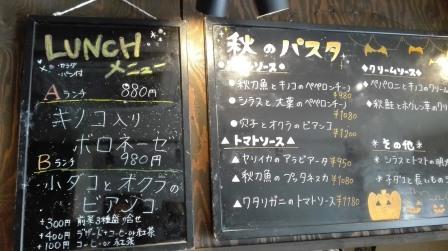 LUNCH
メニュー
サラダ
パン付
Aランチ 880円
キノコ入り
ボロネーゼ
Bランチ 980円
ホダコとオクラの
ビアンコ
+300円 前菜3種盛り合せ
+400円 デザート+コーヒーor紅茶
+100円 コーヒーor紅茶
秋のパスタ
ソース
●秋刀魚とキノコのペペロンチーノ
¥980
●シラスと大葉のペペロンチーノ
¥1080
●穴子とオクラのビアンコ
¥1200
▲トマトソース▲
▲ヤリイカのアラビアータ ¥950
▲秋刀魚のプッタネスカ ¥1080
▲ワタリガニのトマトソース ¥1180
◆クリームソース◆
ペパロニとキノコのクリーム
秋鮭とホウレン草のクリ
*その他*
*シラストマトの
*子ダコと長いもの